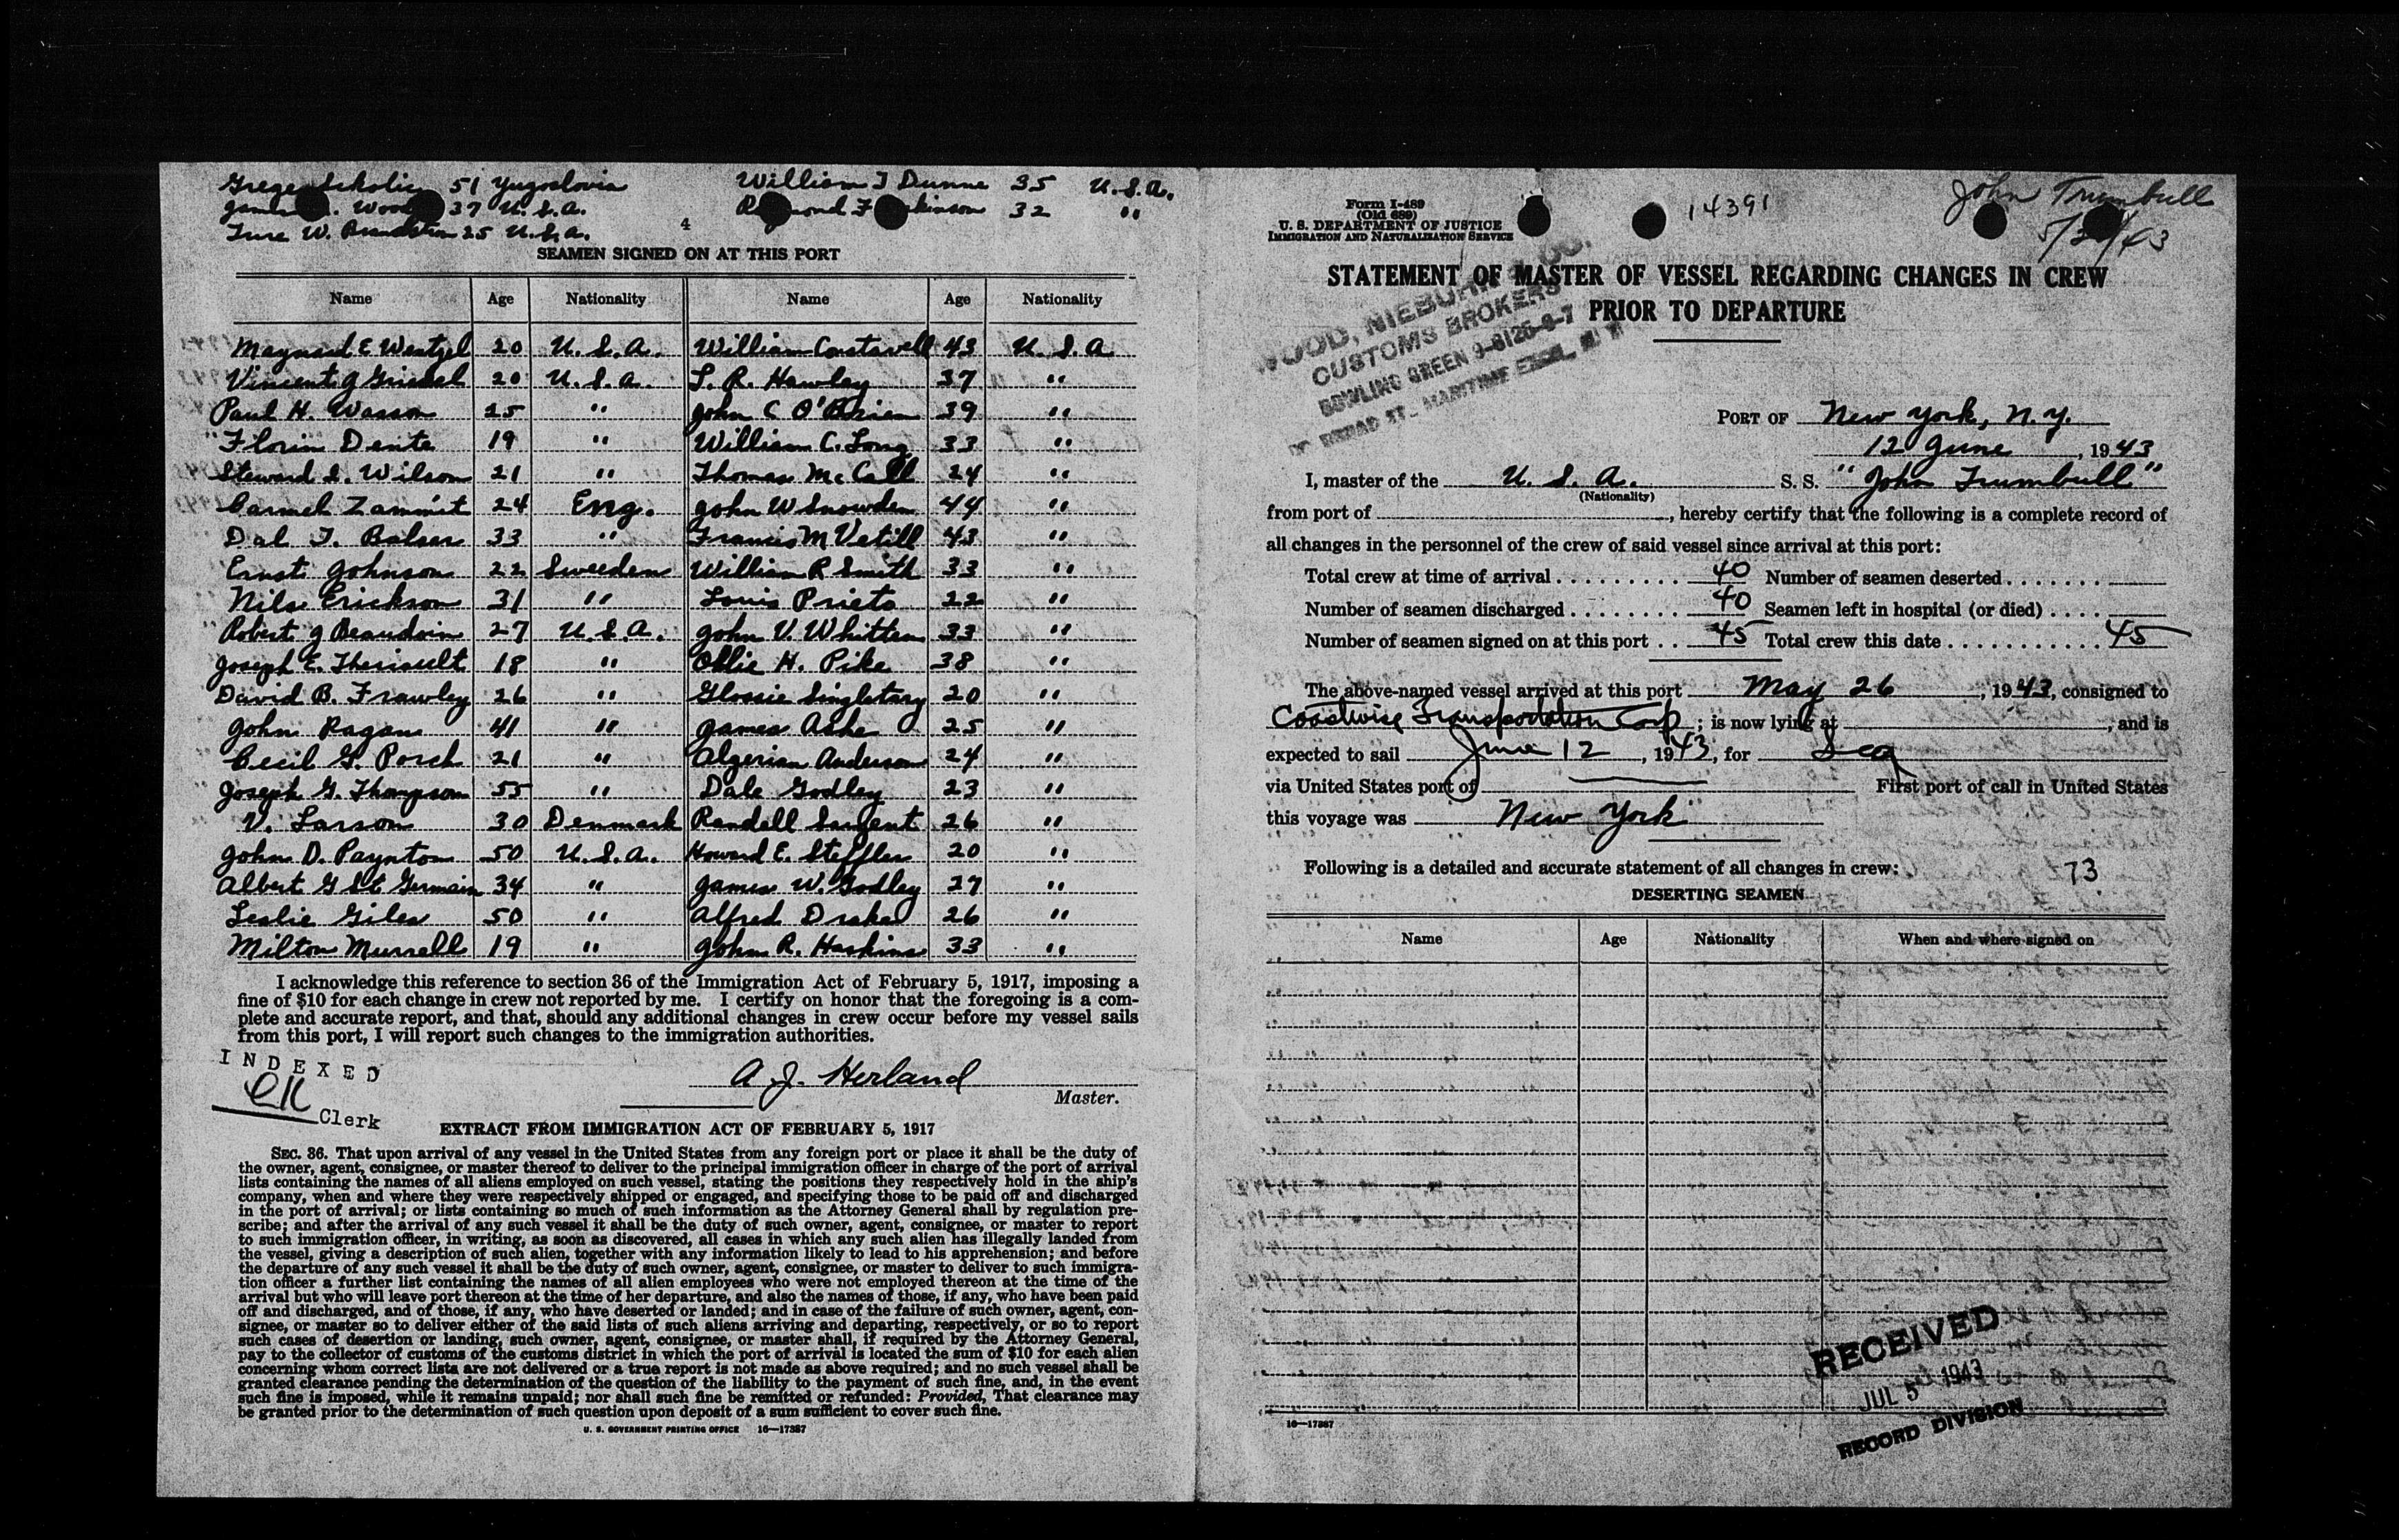 51 Yugoslovia William J Dunne 35 U.S.A.
Wood 37 U.S.A. 32 "
Ture W. 25 U.S.A.
4
SEAMEN SIGNED ON AT THIS PORT
Name Age Nationality Name Age Nationality
Maynard E Wentzel 20 U.S.A. William 43 U.S.A
Vincent J 20 U.S.A. L. R. Hawley 37 "
Paul H. Wasson 25 " John C O'Brien 39 "
Florin Dente 19 " William C. Long 33 "
Steward S. Wilson 21 " Thomas McCall 24 "
Carmel Zammit 24 Eng. John W Snowden 44 "
Dal T. Balser 33 " Francis M Vetill 43 "
Ernst Johnson 22 Sweeden William R Smith 33 "
Nils Erickson 31 " Louis Prieto 22 "
Robert J Beaudoin 27 U.S.A. John V. Whitten 33 "
Joseph E. Theriault 18 " Ollie H. Pike 38 "
David B. Frawley 26 " Glossie Singletary 20 "
John Ragan 41 " James Ashe 25 "
Cecil G. Porch 21 " Algerian Anderson 24 "
Joseph G. Thompson 55 " Dale Godley 23 "
V. Larson 30 Denmark Randell Sargent 26 "
John D. Paynton 50 U.S.A. Howard E. Steffler 20 "
Albert G St Germain 34 " James W. Godley 27 "
Leslie Giles 50 " Alfred Drake 26 "
Milton Murrell 19 " John R. Haskins 33 "
I acknowledge this reference to section 36 of the Immigration Act of February 5, 1917, imposing a
fine of $10 for each change in crew not reported by me. I certify on honor that the foregoing is a com-
plete and accurate report, and that, should any additional changes in crew occur before my vessel sails
from this port, I will report such changes to the immigration authorities.
INDEXED
Clerk
A. J. Herland
Master.
EXTRACT FROM IMMIGRATION ACT OF FEBRUARY 5, 1917
SEC. 36. That upon arrival of any vessel in the United States from any foreign port or place it shall be the duty of
the owner, agent, consignee, or master thereof to deliver to the principal immigration officer in charge of the port of arrival
lists containing the names of all aliens employed on such vessel, stating the positions they respectively hold in the ship's
company, when and where they were respectively shipped or engaged, and specifying those to be paid off and discharged
in the port of arrival; or lists containing so much of such information as the Attorney General shall by regulation pre-
scribe; and after the arrival of any such vessel it shall be the duty of such owner, agent, consignee, or master to report
to such immigration officer, in writing, as soon as discovered, all cases in which any such alien has illegally landed from
the vessel, giving a description of such alien, together with any information likely to lead to his apprehension; and before
the departure of any such vessel it shall be the duty of such owner, agent, consignee, or master to deliver to such immigra-
tion officer a further list containing the names of all alien employees who were not employed thereon at the time of the
arrival but who will leave port thereon at the time of her departure, and also the names of those, if any, who have been paid
off and discharged, and of those, if any, who have deserted or landed; and in case of the failure of such owner, agent, con-
signee, or master so to deliver either of the said lists of such aliens arriving and departing, respectively, or so to report
such cases of desertion or landing, such owner, agent, consignee, or master shall, if required by the Attorney General,
pay to the collector of customs of the customs district in which the port of arrival is located the sum of $10 for each alien
concerning whom correct lists are not delivered or a true report is not made as above required; and no such vessel shall be
granted clearance pending the determination of the question of the liability to the payment of such fine, and, in the event
such fine is imposed, while it remains unpaid; nor shall such fine be remitted or refunded: Provided, That clearance may
be granted prior to the determination of such question upon deposit of a sum sufficient to cover such fine.
U. S. GOVERNMENT PRINTING OFFICE 16—17387
Form I-489
(Old 689)
U. S. DEPARTMENT OF JUSTICE
IMMIGRATION AND NATURALIZATION SERVICE
14391
John Trumbull
STATEMENT OF MASTER OF VESSEL REGARDING CHANGES IN CREW
PRIOR TO DEPARTURE
WOOD, NIEBUHR & CO.
CUSTOMS BROKERS
BOWLING GREEN 9-8125-6-7
BROAD ST. MARITIME
PORT OF New York, N.Y.
12 June, 1943
I, master of the U.S.A. S. S. "John Trumbull"
(Nationality)
from port of , hereby certify that the following is a complete record of
all changes in the personnel of the crew of said vessel since arrival at this port:
Total crew at time of arrival 40 Number of seamen deserted
Number of seamen discharged 40 Seamen left in hospital (or died)
Number of seamen signed on at this port 45 Total crew this date 45
The above-named vessel arrived at this port May 26, 1943, consigned to
Coastwise Transportation Corp; is now lying at , and is
expected to sail June 12, 1943, for Sea
via United States port of First port of call in United States
this voyage was New York
Following is a detailed and accurate statement of all changes in crew: 73
DESERTING SEAMEN
Name Age Nationality When and where signed on
RECEIVED
JUL 5 1943
RECORD DIVISION
16—17387